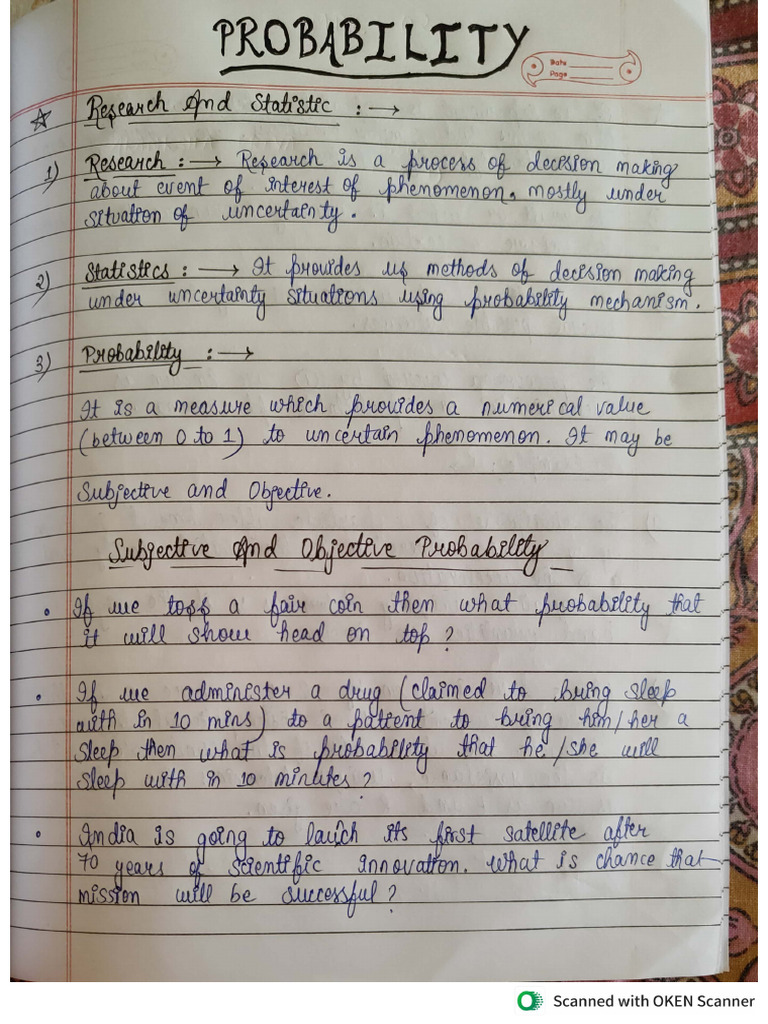 PROBABILITY
Date
Page
☆ Research And Statistic :→
1) Research :→ Research is a process of decision making
about event of interest of phenomenon, mostly under
situation of uncertainty.
2) Statistics :→ It provides us methods of decision making
under uncertainty situations using probability mechanism.
3) Probability :→
It is a measure which provides a numerical value
(between 0 to 1) to uncertain phenomenon. It may be
Subjective and Objective.
Subjective And Objective Probability
• If we toss a fair coin then what probability that
it will show head on top?
• If we administer a drug (claimed to bring sleep
with in 10 mins) to a patient to bring him/her a
sleep then what is probability that he/she will
sleep with in 10 minutes?
• India is going to lauch its first satellite after
70 years of scientific innovation. What is chance that
mission will be successful?
Scanned with OKEN Scanner